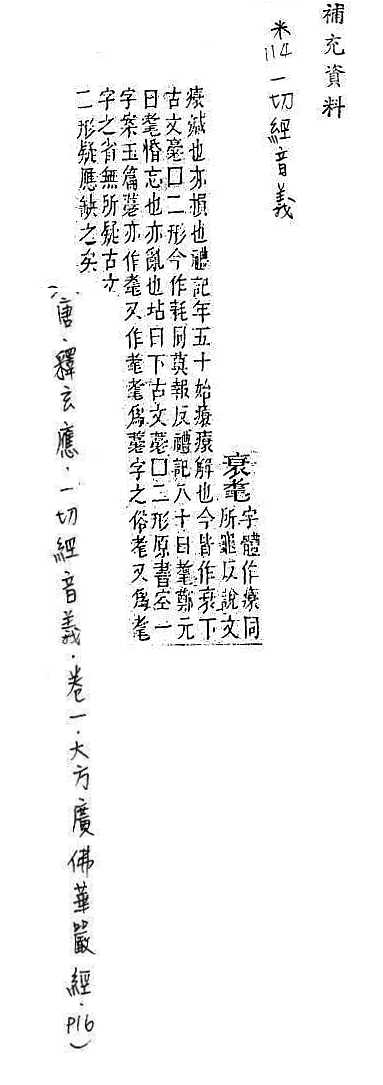 補充資料
米114 一切經音義
衰耄字體作㾁同
所龜反說文
㾁減也亦損也禮記年五十始㾁㾁解也今皆作衰下
古文𦽡口二形今作耗同莫報反禮記八十曰耄鄭元
曰耄惛忘也亦亂也坫曰下古文𦽡口二形原書空一
字案玉篇𦽡亦作耄又作耄耄爲𦽡字之俗耄又爲耄
字之省無所疑古文
二形疑應缺之矣
(唐．釋玄應．一切經音義．卷一．大方廣佛華嚴經．P16)